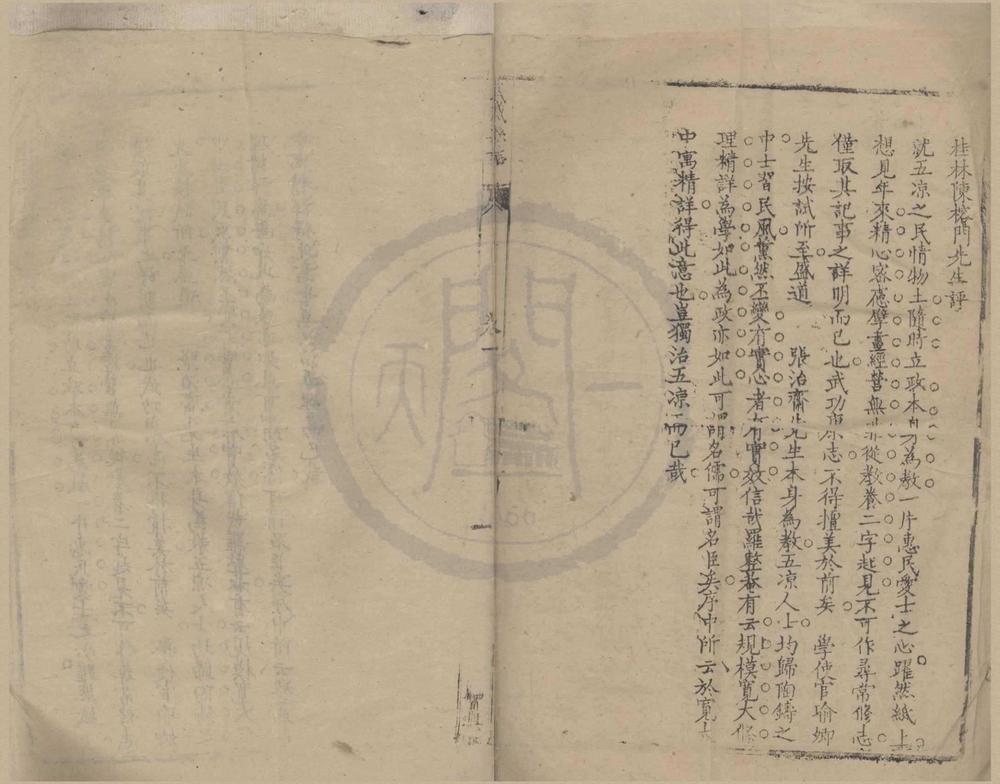 桂林陳榕門先生評
就五凉之民情物土隨時立政本身為教一片惠民愛士之心躍然紙上
想見年來精心密慮擘畫經營無非從教養二字起見不可作尋常修志
僅取其記事之詳明而已也武功 志不得擅美於前矣 學使官瑜卿
先生按試所至盛道 張治齋先生本身為教五凉人士均歸陶鑄之
中士習民風薰然丕變有實心者有實效信哉羅整菴有云規模寬大條
理精詳為學如此為政亦如此可謂名儒可謂名臣矣序中所云於寬大
中寓精詳得此意也豈獨治五凉而已哉
卷一
一